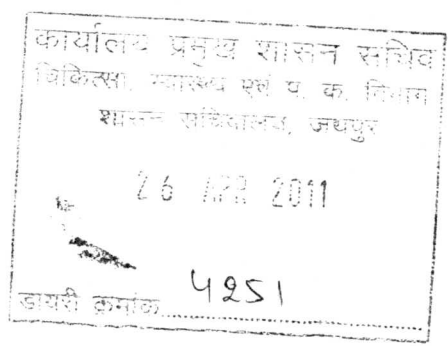 कार्यालय प्रमुख शासन सचिव
चिकित्सा, स्वास्थ्य एवं प. क. विभाग
शासन सचिवालय, जयपुर
26 APR 2011
डायरी क्रमांक 4251